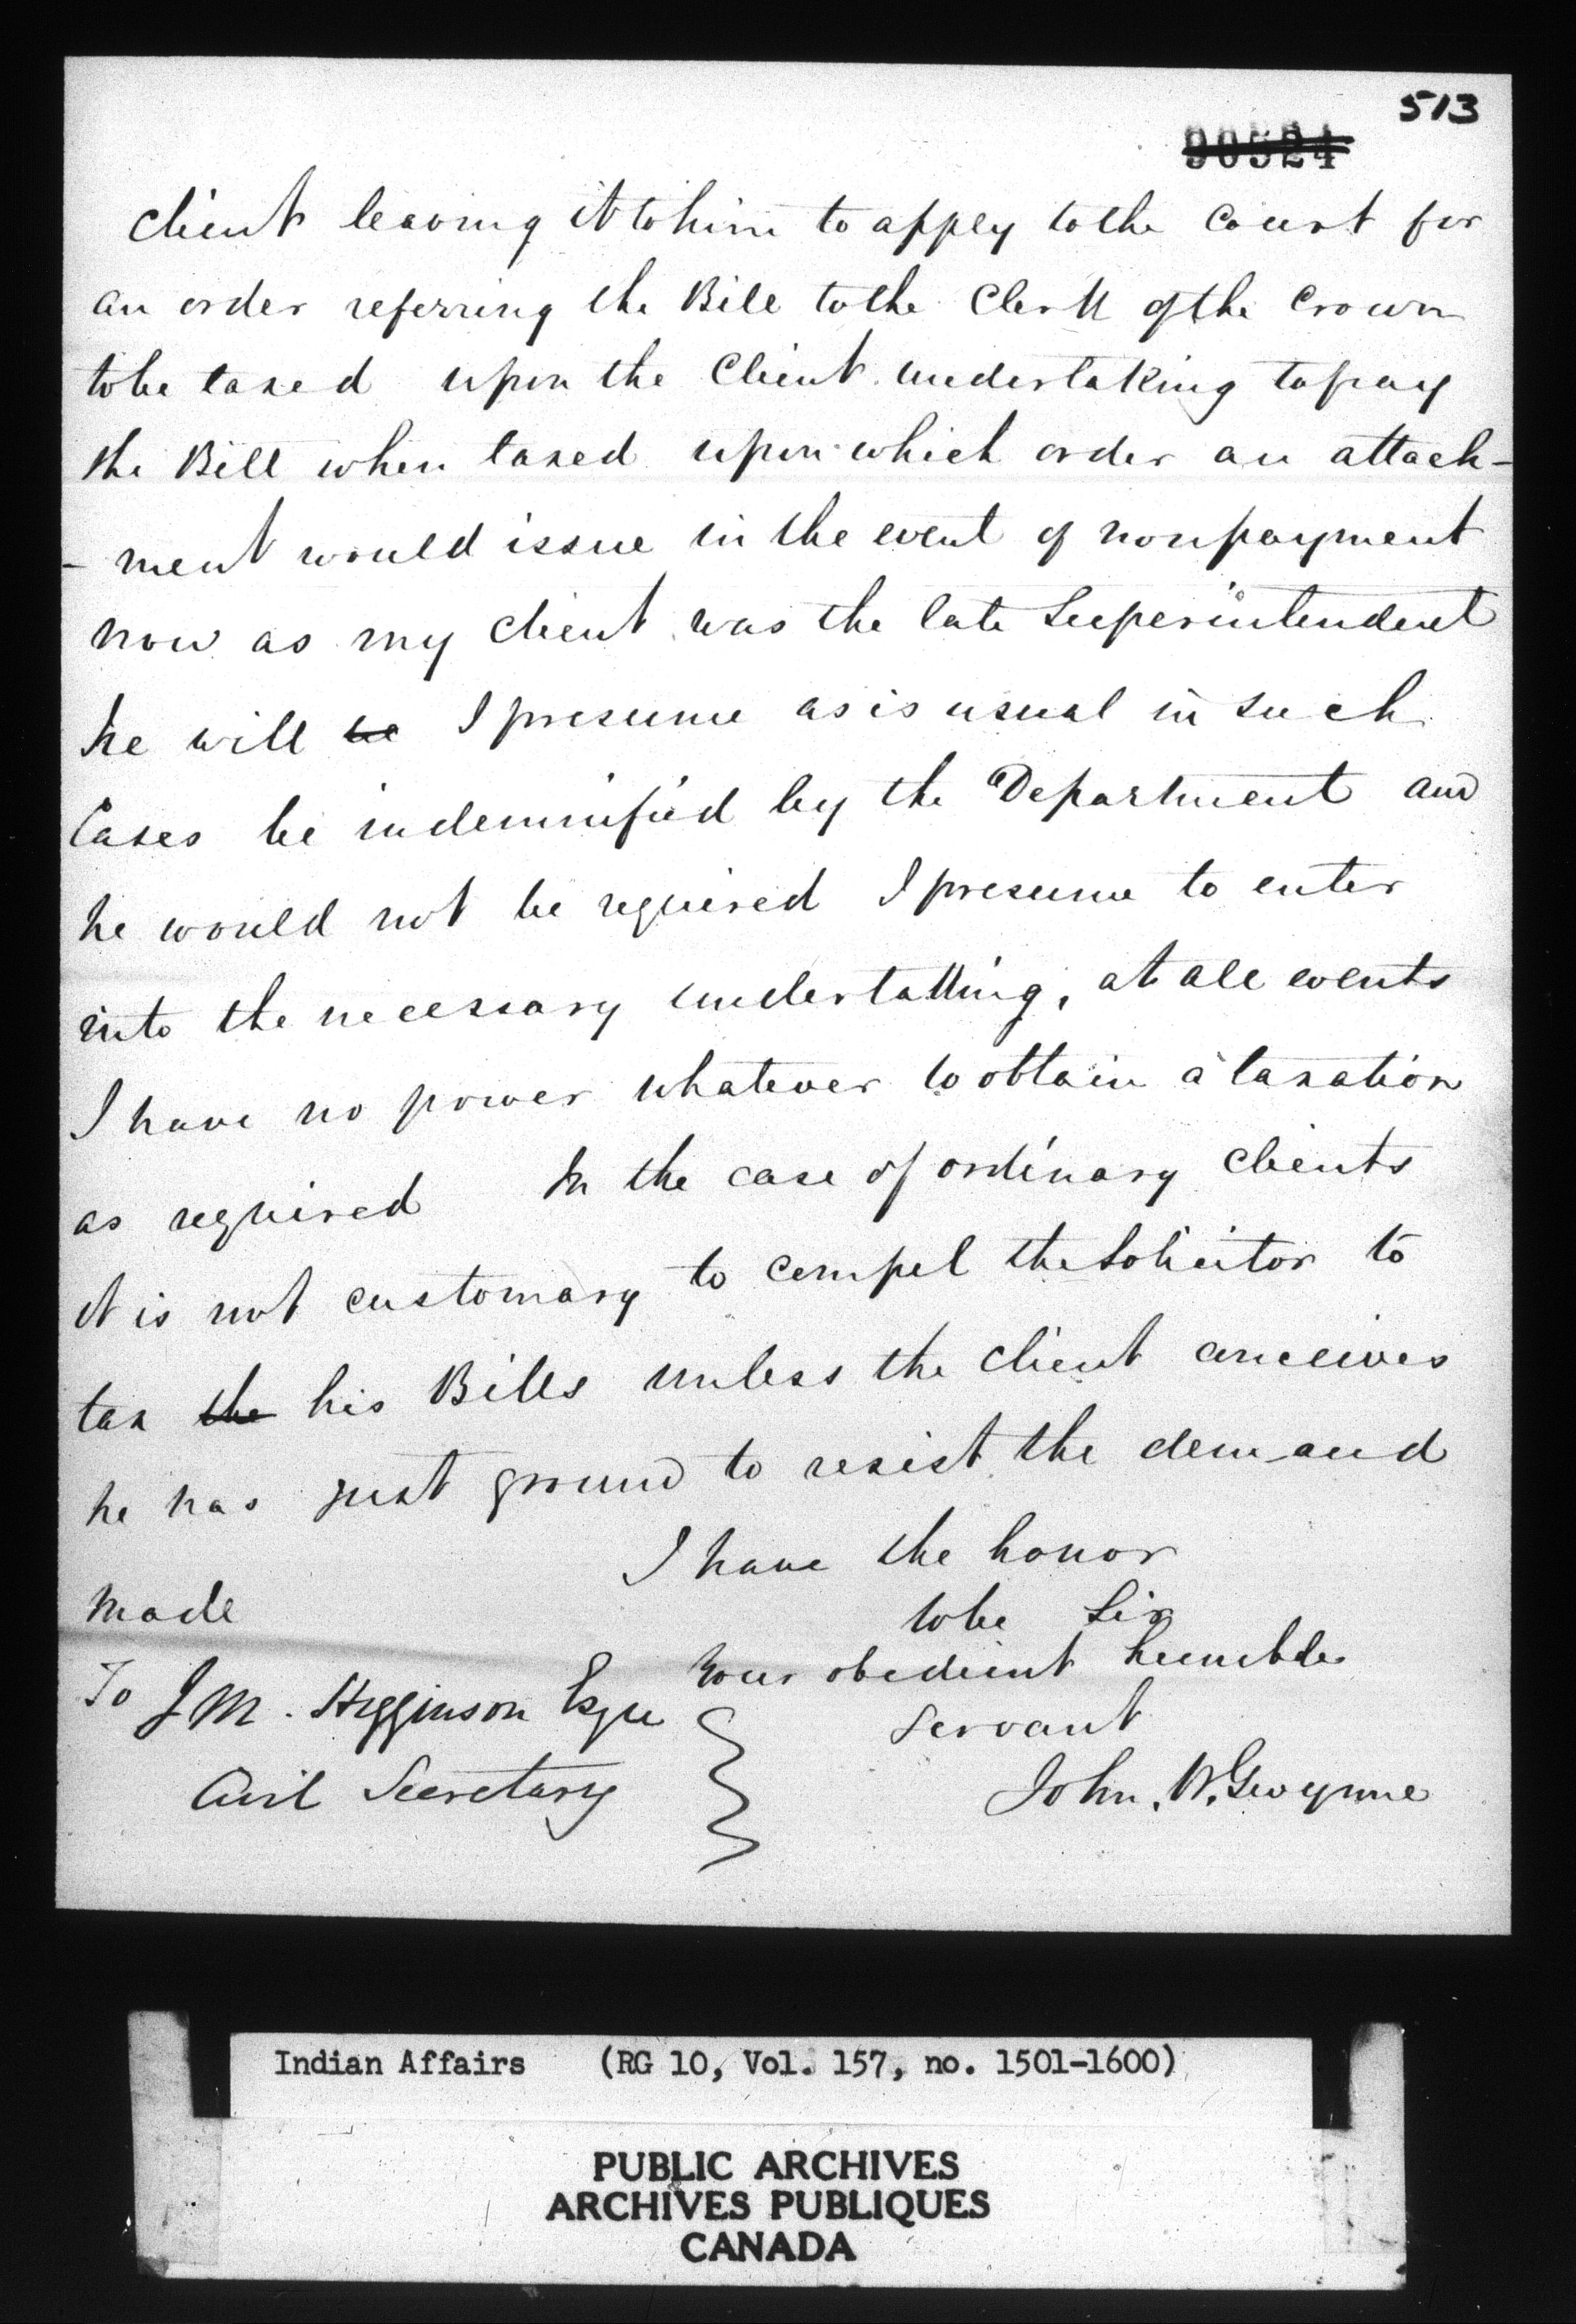 513
90524
client leaving it to him to apply to the Court for
an order referring the Bill to the Clerk of the Crown
to be taxed upon the Client undertaking to pay
the Bill when taxed upon which order an attach-
-ment would issue in the event of nonpayment
now as my client was the late Superintendent
he will be I presume as is usual in such
Cases be indemnified by the Department and
he would not be required I presume to enter
into the necessary undertaking, at all events
I have no power whatever to obtain a taxation
as required In the case of ordinary clients
it is not customary to compel the Solicitor to
tax the his Bills unless the client conceives
he has just ground to resist the demand
made
I have the honor
to be Sir
Your obedient humble
servant
John. W. Gwynne
To J M. Higginson Esqre
Civil Secretary
Indian Affairs (RG 10, Vol. 157, no. 1501-1600)
PUBLIC ARCHIVES
ARCHIVES PUBLIQUES
CANADA